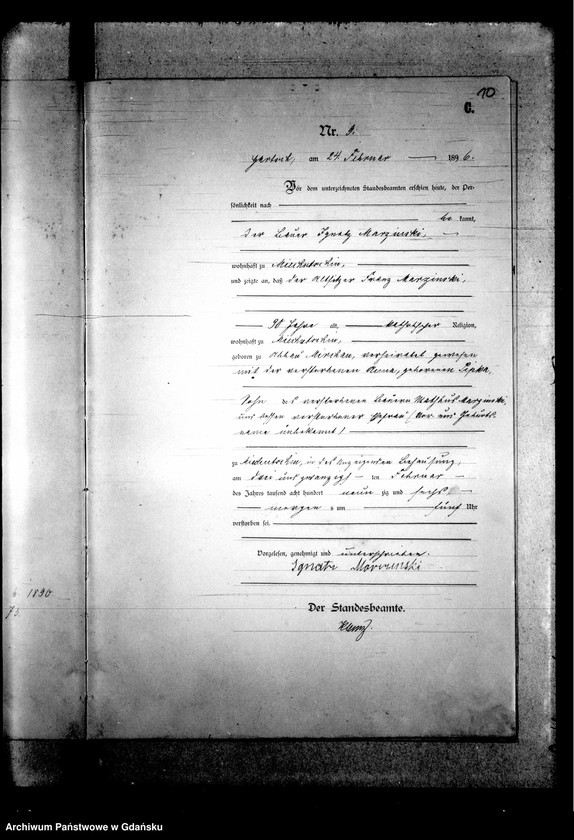 10
C.
Nr. 9.
am 24 Februar 1896.
Vor dem unterzeichneten Standesbeamten erschien heute, der Per-
sönlichkeit nach
be kannt,
der Bauer Ignatz Marzinski,
wohnhaft zu
und zeigte an, daß der Altsitzer Franz Marzinski,
90 Jahre alt, katholischer Religion,
wohnhaft zu
geboren zu verheiratet gewesen
mit der verstorbenen Anna, geborenen Lipka,
Sohn des verstorbenen Bauern Mathäus Marzinski
und dessen verstorbener Ehefrau (Vor und Geburts-
name unbekannt)
zu in des Anzeigenden Behausung,
am drei und zwanzig ten Februar
des Jahres tausend acht hundert neun zig und sechs
morgens um fünf Uhr
verstorben sei.
Vorgelesen, genehmigt und unterschrieben.
Ignatz
Der Standesbeamte.
1890
73
Archiwum Państwowe w Gdańsku